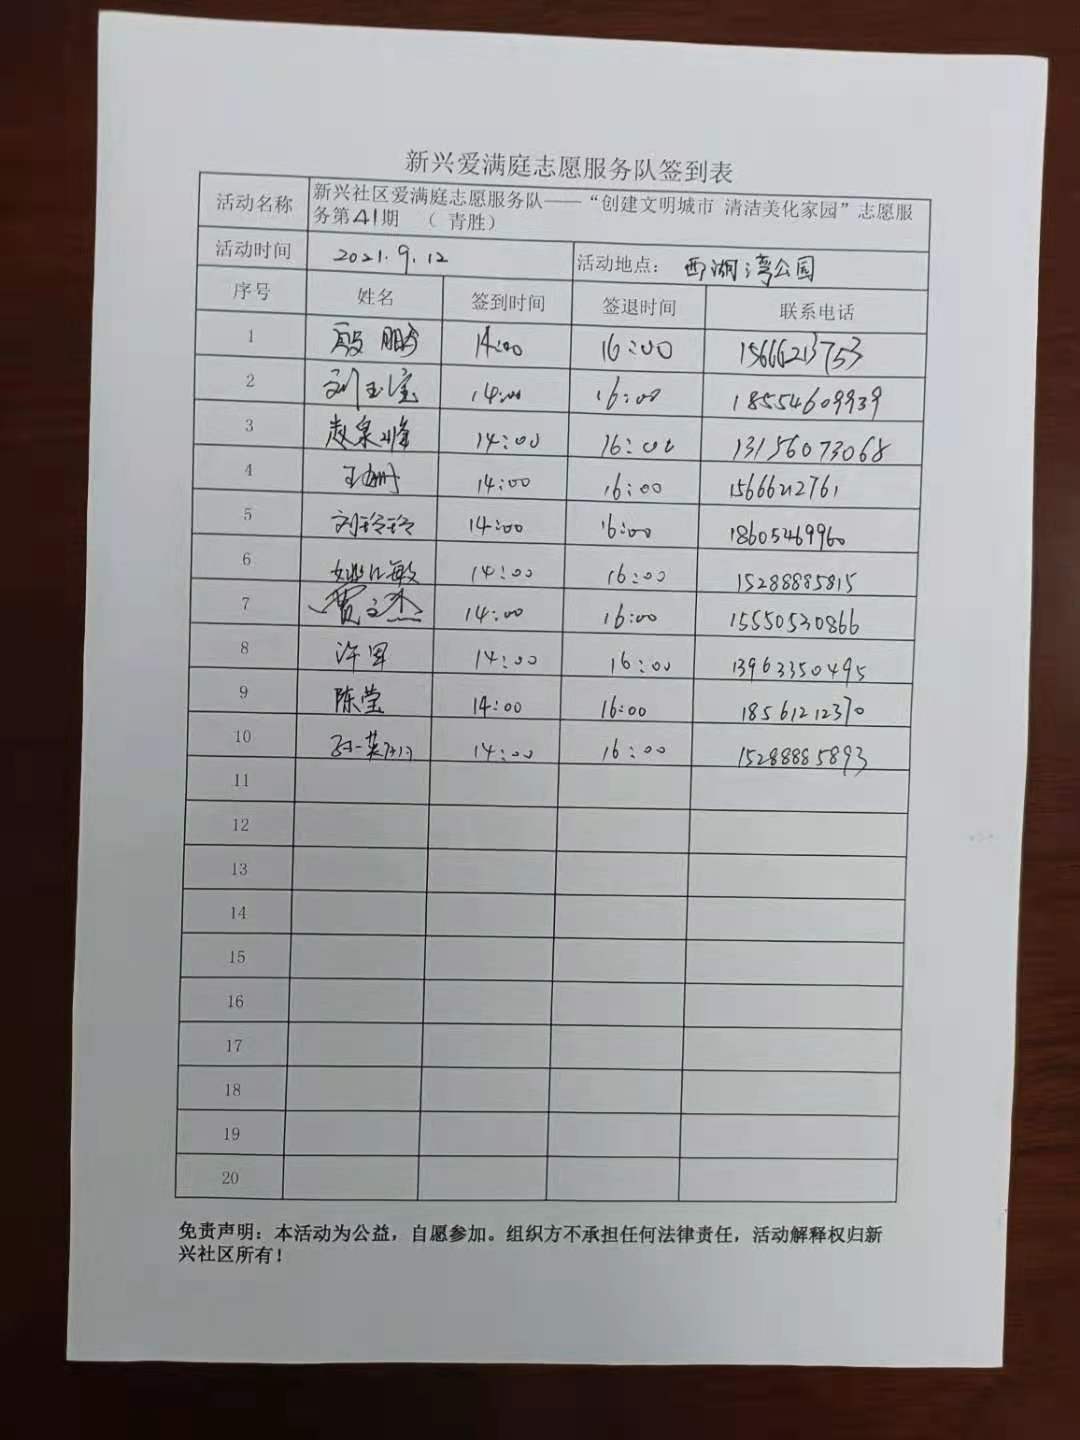 新兴爱满庭志愿服务队签到表
活动名称 新兴社区爱满庭志愿服务队——“创建文明城市 清洁美化家园”志愿服
务第41期 （ 青胜）
活动时间 2021.9.12 活动地点： 西湖湾公园
序号 姓名 签到时间 签退时间 联系电话
1 殷鹏 14:00 16:00 15666213753
2 刘玉宝 14:00 16:00 18554609939
3 赵泉峰 14:00 16:00 13156073068
4 王珊 14:00 16:00 15666212761
5 刘玲玲 14:00 16:00 18605469960
6 姚仁敏 14:00 16:00 15288885815
7 贾文杰 14:00 16:00 15550530866
8 许军 14:00 16:00 13963350495
9 陈莹 14:00 16:00 18561212370
10 14:00 16:00 15288885893
11
12
13
14
15
16
17
18
19
20
免责声明：本活动为公益，自愿参加。组织方不承担任何法律责任，活动解释权归新
兴社区所有！